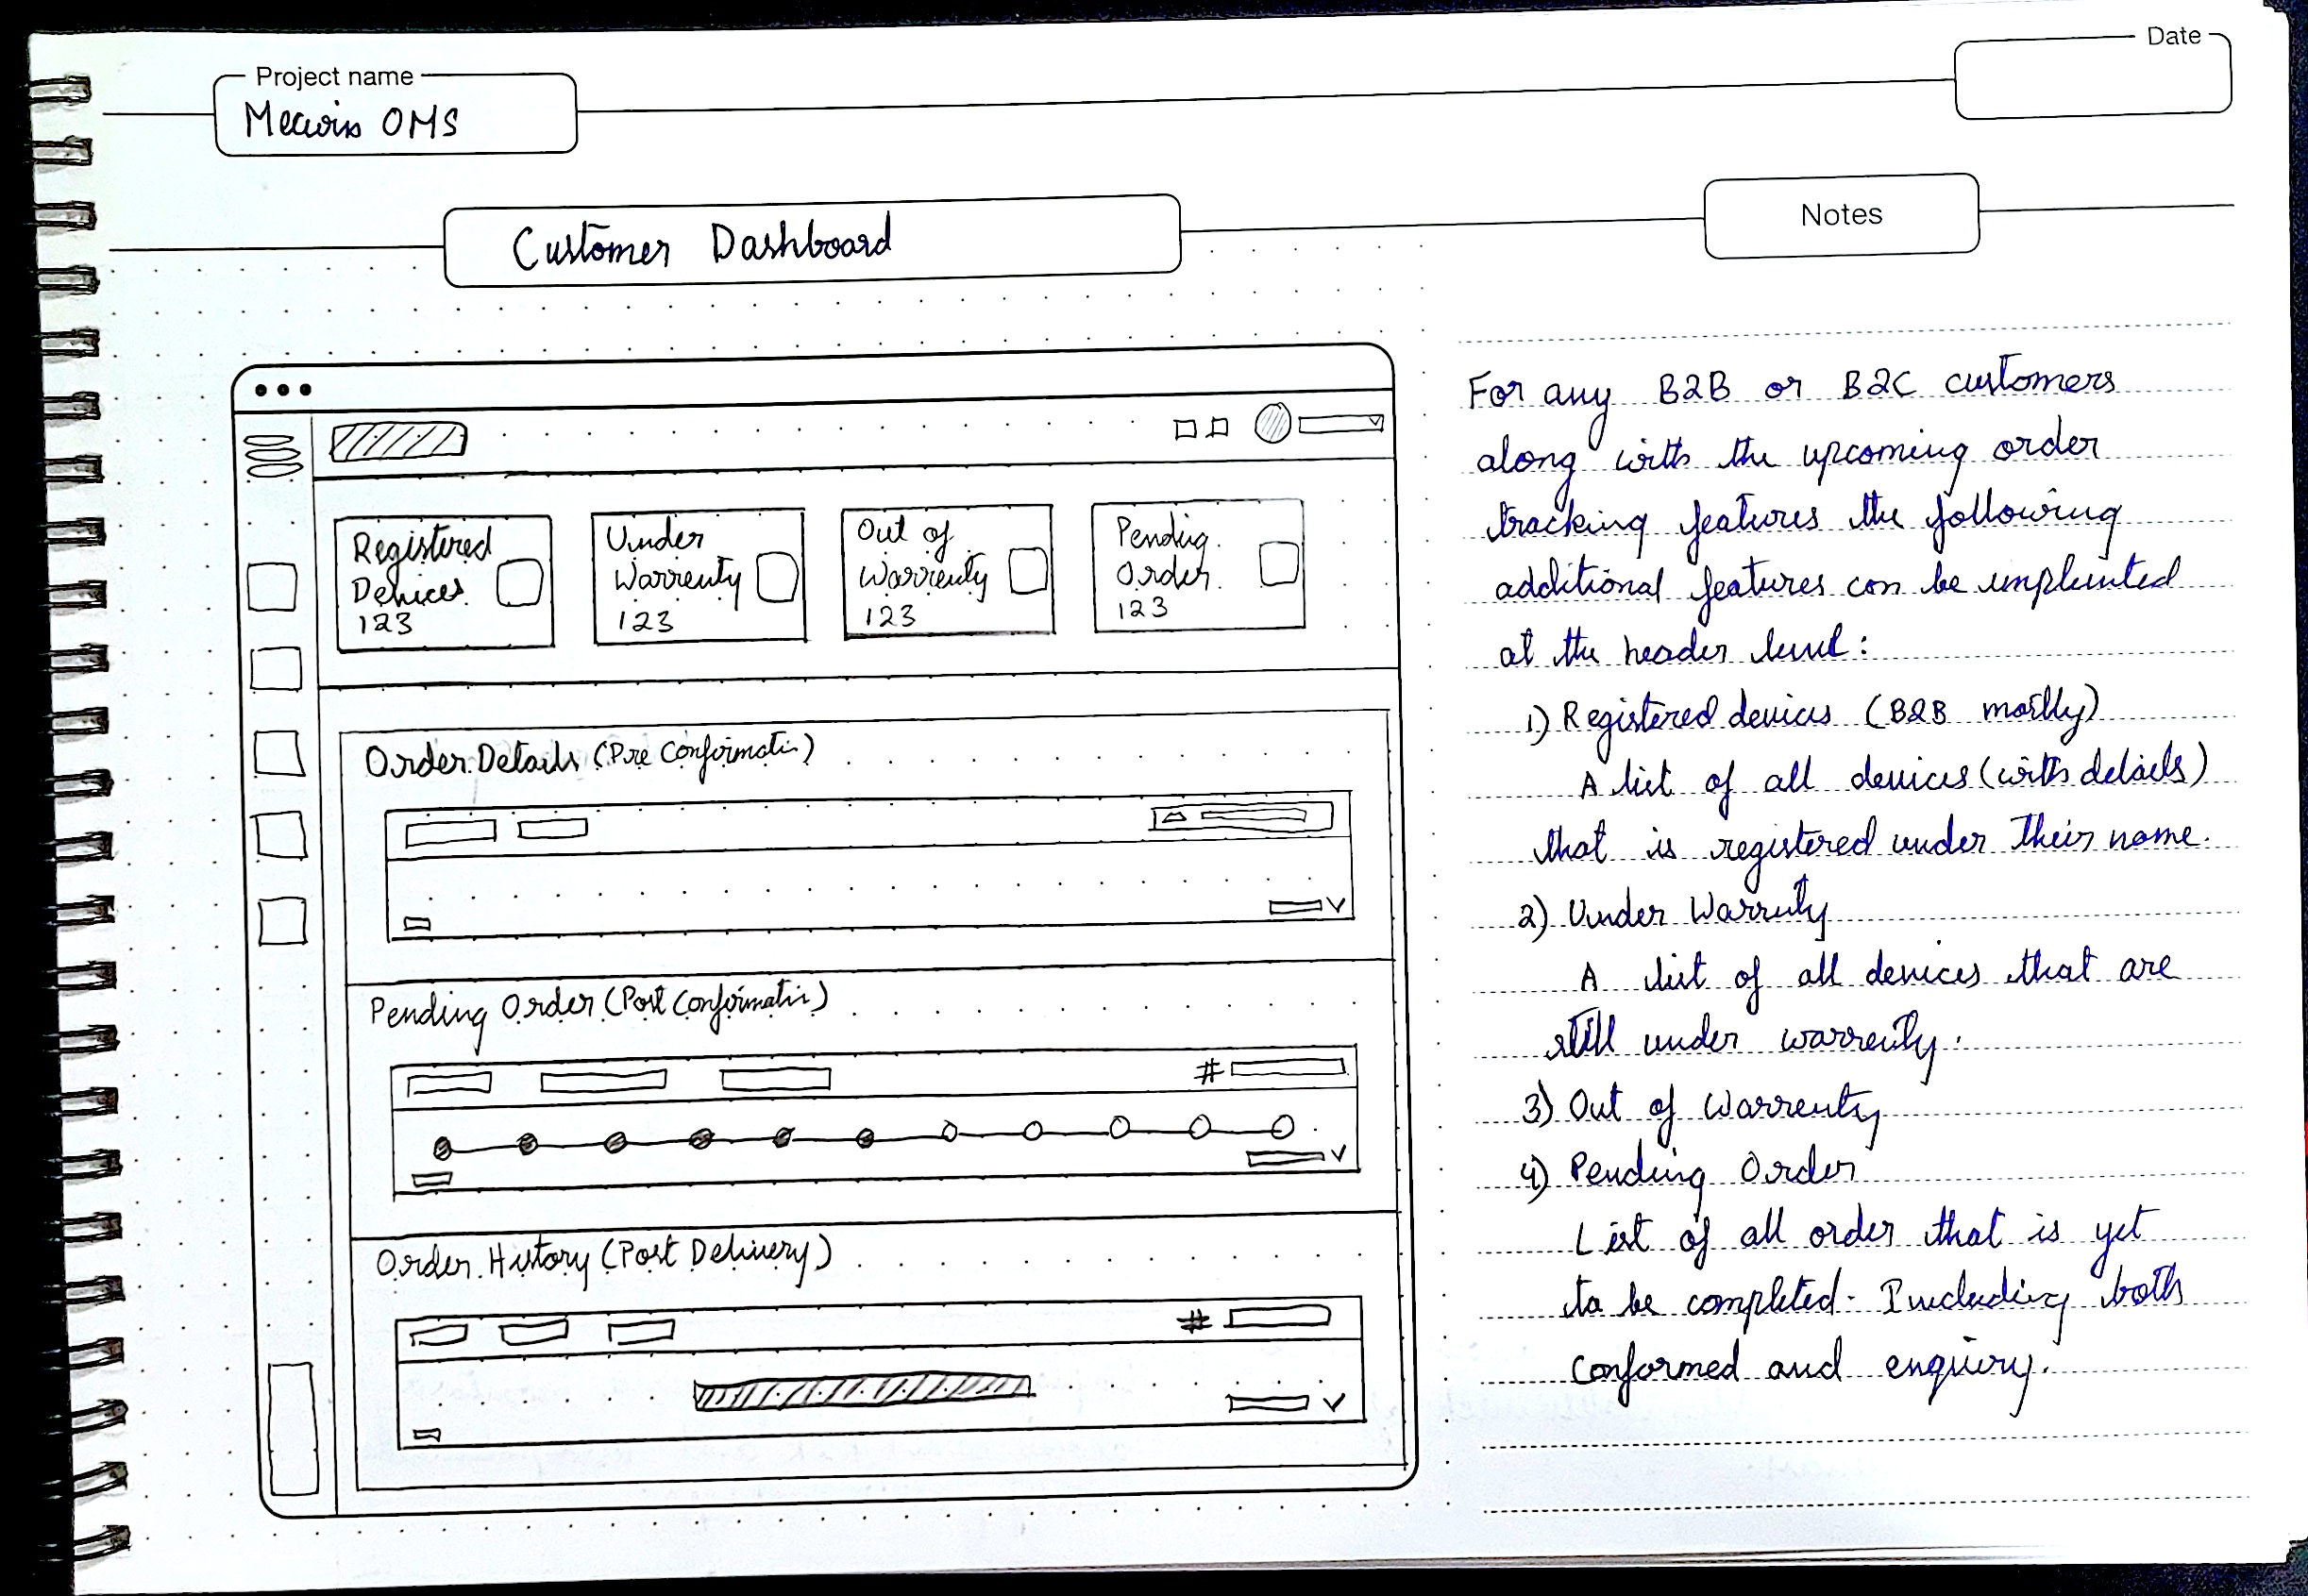 Project name
Mecwin OMS
Date
Customer Dashboard
Notes
Registered
Devices
123
Under
Warrenty
123
Out of
Warrenty
123
Pending
Order
123
Order Details (Pre Confirmatin)
#
Pending Order (Post Confirmatin)
#
Order History (Post Delivery)
For any B2B or B2C customers
along with the upcoming order
tracking features the following
additional features can be implented
at the header level:
1) Registered devices (B2B mostly)
A list of all devices (with details)
that is registered under their name.
2) Under Warrenty
A list of all devices that are
still under warrenty.
3) Out of Warrenty
4) Pending Order
List of all order that is yet
to be completed. Including both
conformed and enquiry.